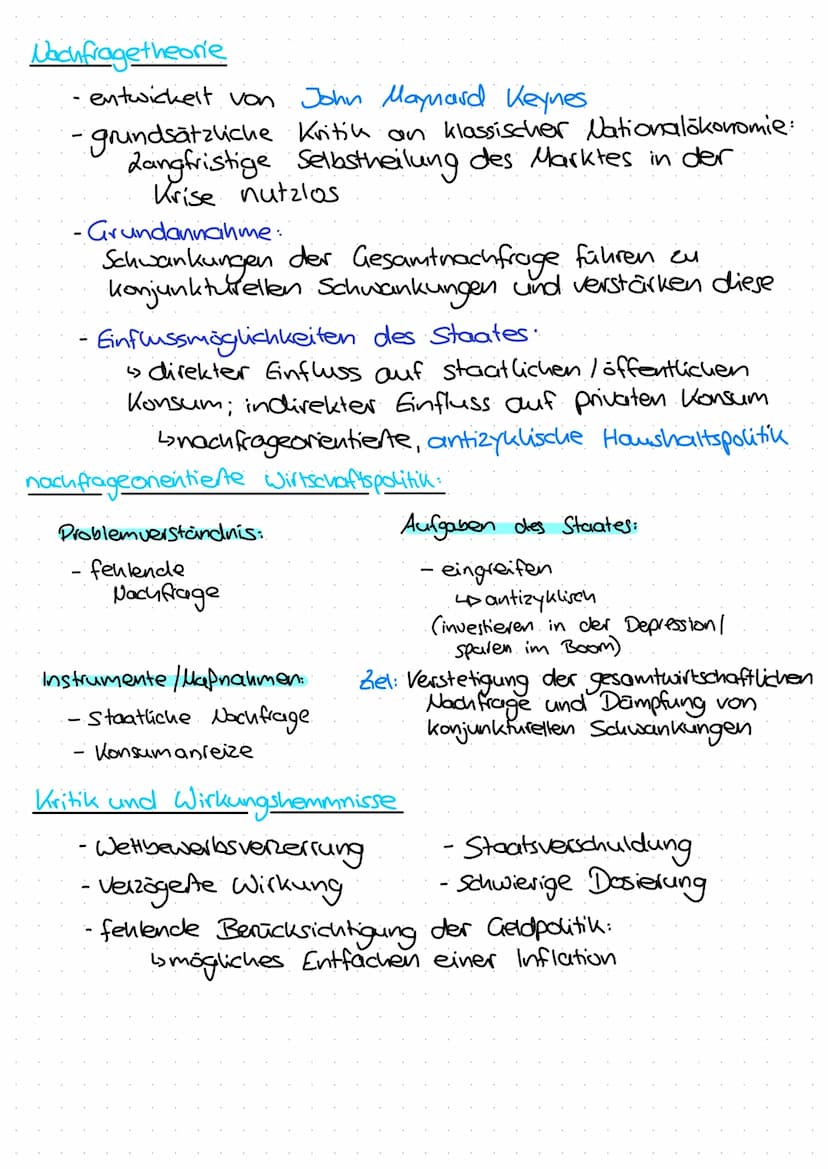 Nachfragetheorie
- entwickelt von John Maynard Keynes
- grundsätzliche Kritik an klassischer Nationalökonomie:
Langfristige Selbstheilung des Marktes in der
Krise nutzlos
- Grundannahme:
Schwankungen der Gesamtnachfrage führen zu
konjunkturellen Schwankungen und verstärken diese
- Einflussmöglichkeiten des Staates:
↳ direkter Einfluss auf staatlichen / öffentlichen
Konsum; indirekter Einfluss auf privaten Konsum
↳ nachfrageorientierte, antizyklische Haushaltspolitik
nachfrageorientierte Wirtschaftspolitik:
Problemverständnis:
- fehlende
Nachfrage
Aufgaben des Staates:
- eingreifen
↳ antizyklisch
(investieren in der Depression /
sparen im Boom)
Instrumente / Maßnahmen:
- Staatliche Nachfrage
- Konsumanreize
Ziel: Verstetigung der gesamtwirtschaftlichen
Nachfrage und Dämpfung von
konjunkturellen Schwankungen
Kritik und Wirkungshemmnisse
- Wettbewerbsverzerrung
- Staatsverschuldung
- verzögerte Wirkung
- schwierige Dosierung
- fehlende Berücksichtigung der Geldpolitik:
↳ mögliches Entfachen einer Inflation